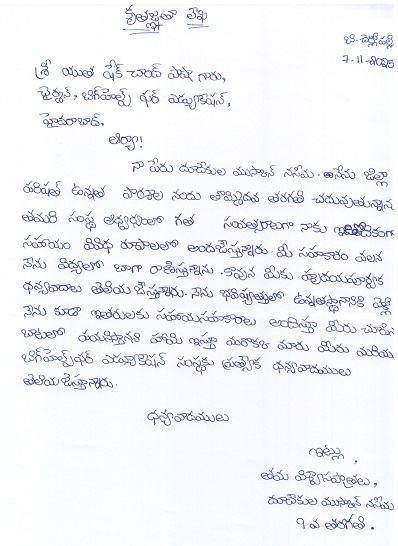 కృతజ్ఞతా లేఖ
బి. చెర్లోపల్లి
7-11-2025
శ్రీ యుత షేక్ చాంద్ పాషా గారు,
ఛైర్మన్, బిగ్‌హెల్ప్ ఫర్ ఎడ్యుకేషన్,
హైదరాబాద్.
ఆర్యా!
నా పేరు దూదేకుల ముస్కాన్ నసీమ. నేను జిల్లా
పరిషత్ ఉన్నత పాఠశాల నందు తొమ్మిదవ తరగతి చదువుతున్నాను
తమరి సంస్థ ఆధ్వర్యంలో గత సంవత్సరాలుగా నాకు
సహాయం వివిధ రూపాలలో అందుజేస్తున్నారు. మీ సహకారం వలన
నేను విద్యలో బాగా రాణిస్తున్నాను. కావున మీకు హృదయపూర్వక
ధన్యవాదాలు తెలియ జేస్తున్నాను. నేను భవిష్యత్తులో ఉన్నతస్థానానికి వెళ్లి
నేను కూడా ఇతరులకు సహాయసహకారాలు అందిస్తూ మీరు చూపిన
బాటలో పయనిస్తానని హామి ఇస్తూ మరొకసారి మీరు మరియు
బిగ్‌హెల్ప్‌ఫర్ ఎడ్యుకేషన్ సంస్థకు ప్రత్యేక ధన్యవాదములు
తెలియజేస్తున్నాను.
ధన్యవాదములు
ఇట్లు,
తమ విశ్వాసపాత్రులు,
దూదేకుల ముస్కాన్ నసీమ
9 వ తరగతి.